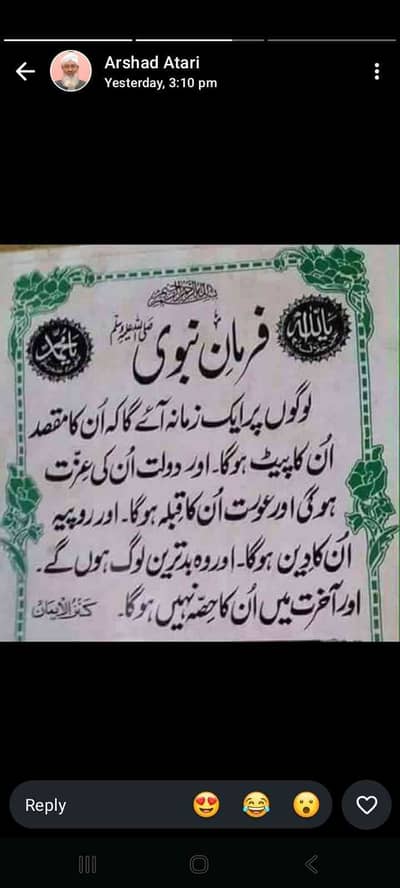 Arshad Atari
Yesterday, 3:10 pm
بسم اللہ الرحمن الرحیم
یا اللہ
یا محمد
فرمانِ نبوی صلی اللہ علیہ وسلم
لوگوں پر ایک زمانہ آئے گا کہ اُن کا مقصد
اُن کا پیٹ ہوگا۔ اور دولت اُن کی عزّت
ہوگی اور عورت اُن کا قبلہ ہوگا۔ اور روپیہ
اُن کا دِین ہوگا۔ اور وہ بدترین لوگ ہوں گے۔
اور آخرت میں اُن کا حِصّہ نہیں ہوگا۔ کنز الایمان
Reply